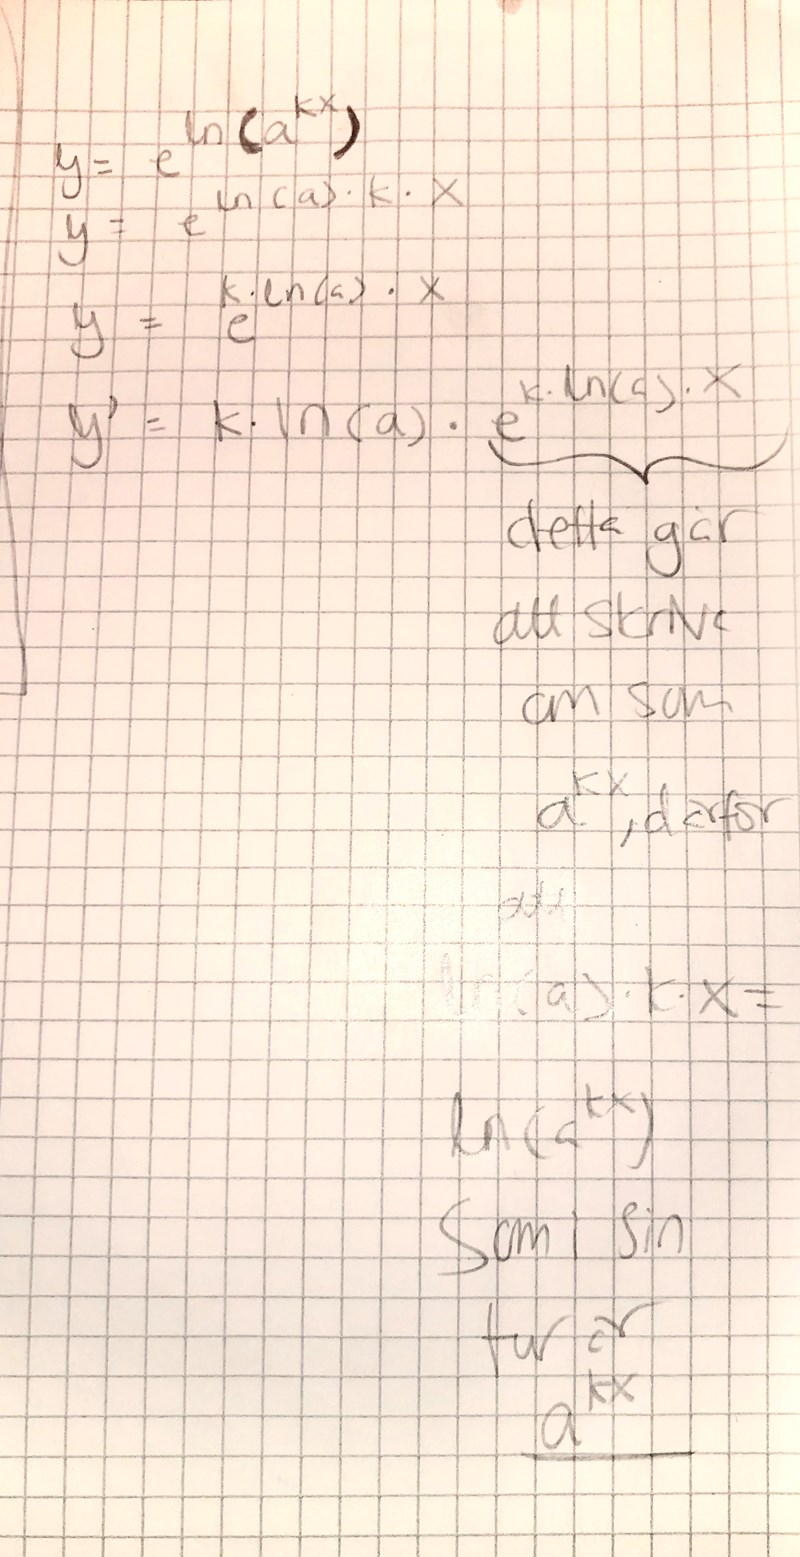 y = e^ln(a^kx)
y = e^ln(a)·k·x
y = e^k·ln(a)·x
y' = k·ln(a)·e^k·ln(a)·x
detta går
att skriva
om som
a^kx, därför
att
ln(a)·k·x=
ln(a^kx)
Som i sin
tur är
a^kx